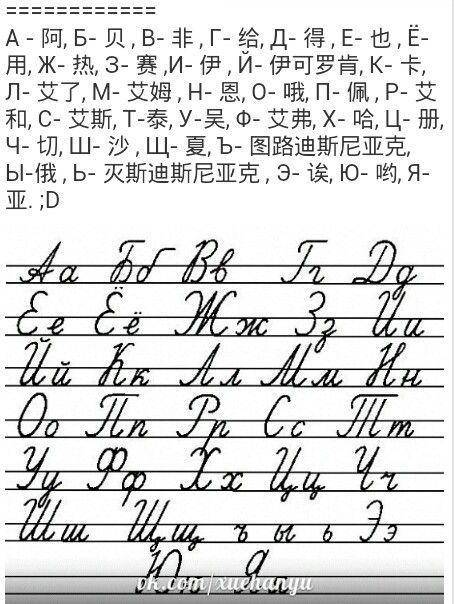 ============
А - 阿, Б- 贝 , В- 非 , Г- 给, Д- 得 , Е- 也 , Ё-
用, Ж- 热, З- 赛 ,И- 伊 , Й- 伊可罗肯, К- 卡,
Л- 艾了, М- 艾姆 , Н- 恩, О- 哦, П- 佩 , Р- 艾
和, С- 艾斯, Т-泰, У-吴, Ф- 艾弗, Х- 哈, Ц- 册,
Ч- 切, Ш- 沙 , Щ- 夏, Ъ- 图路迪斯尼亚克,
Ы-俄 , Ь- 灭斯迪斯尼亚克 , Э- 诶, Ю- 哟, Я-
亚. ;D
Аа Бб Вв Гг Дд
Ее Ёё Жж Зз Ии
Йй Кк Лл Мм Нн
Оо Пп Рр Сс Тт
Уу Фф Хх Цц Чч
Шш Щщ ъ ы ь Ээ
Юю Яя
vk.com/xuehanyu